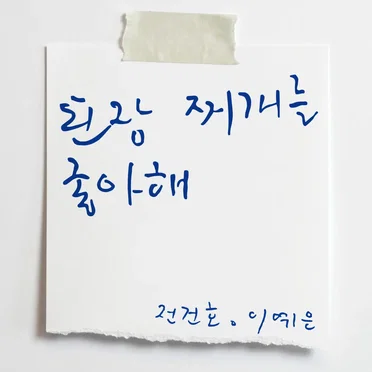 된장 찌개를
좋아해
전건호. 이예은